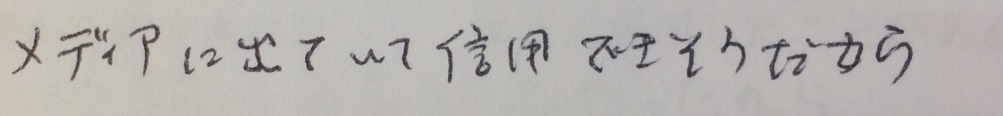 メディアに出ていて信用できそうだから